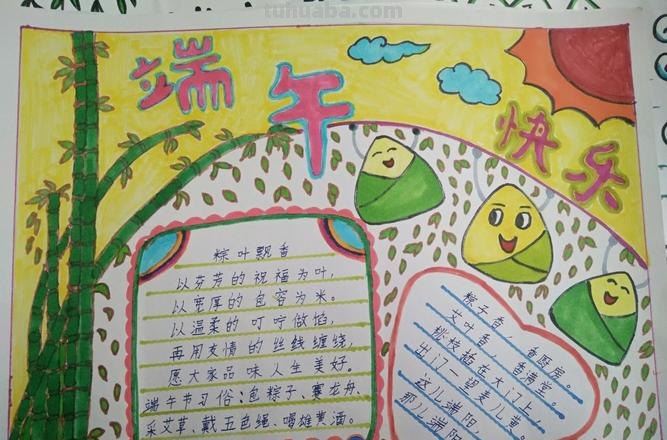 tuhuaba.com
端午
快乐
粽叶飘香
以芬芳的祝福为叶，
以宽厚的包容为米。
以温柔的叮咛做馅，
再用友情的丝线缠绕，
愿大家品味人生美好。
端午节习俗：包粽子、赛龙舟、
采艾草、戴五色绳、喝雄黄酒。
粽子香，香厨房。
艾叶香，香满堂。
桃枝插在大门上，
出门一望麦儿黄。
这儿端阳，
那儿端阳